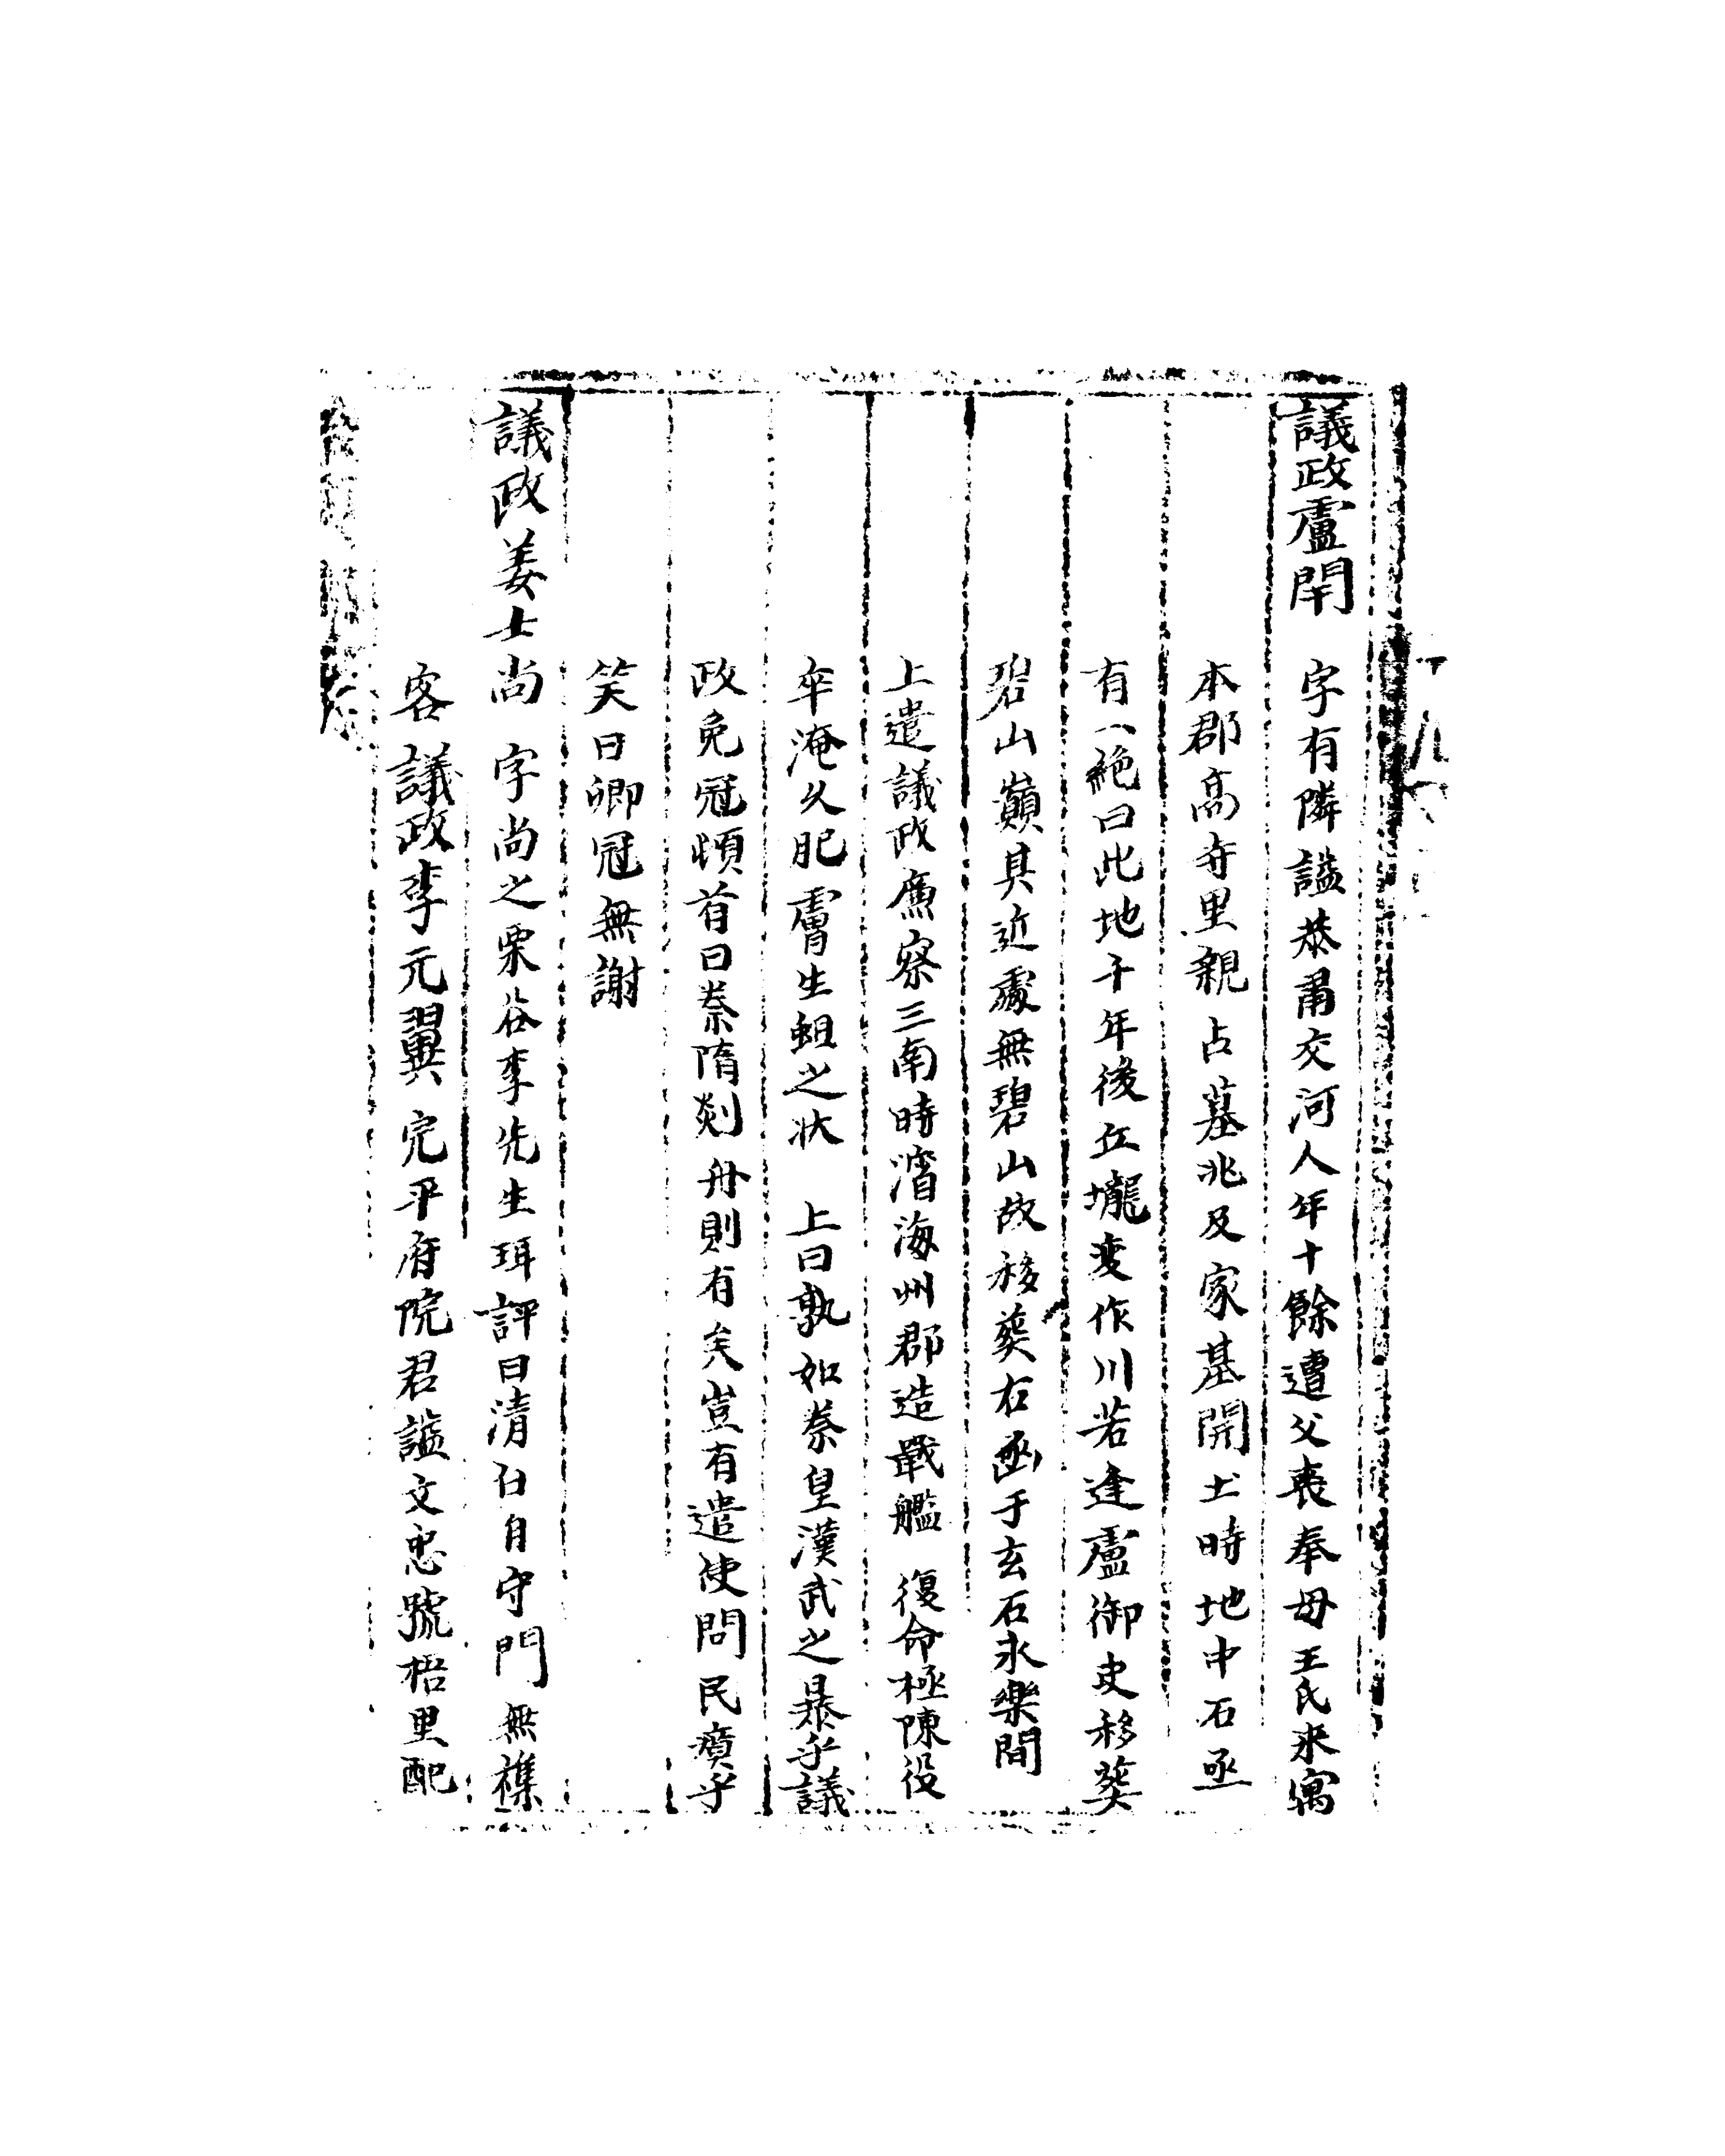 議政盧閈 字有隣謚恭肅交河人年十餘遭父喪奉母王氏来寓
本郡髙寺里親占墓兆及家基開土時地中石函
有一絶曰此地千年後丘壠变作川若逢盧御史移葵
碧山巔其近處無碧山故移葵右函于玄石永樂間
上遣議政廉察三南時濱海州郡造戰艦 復命極陳役
卒淹久肥膚生蛆之状 上曰孰如秦皇漢武之暴乎議
政免冠頓首曰秦隋剡舟則有矣豈有遣使問民瘼乎
笑曰卿冠無謝
議政姜士尚 字尚之栗谷李先生珥評曰清白自守門無襍
客 議政李元翼 完平府院君謚文忠號梧里配